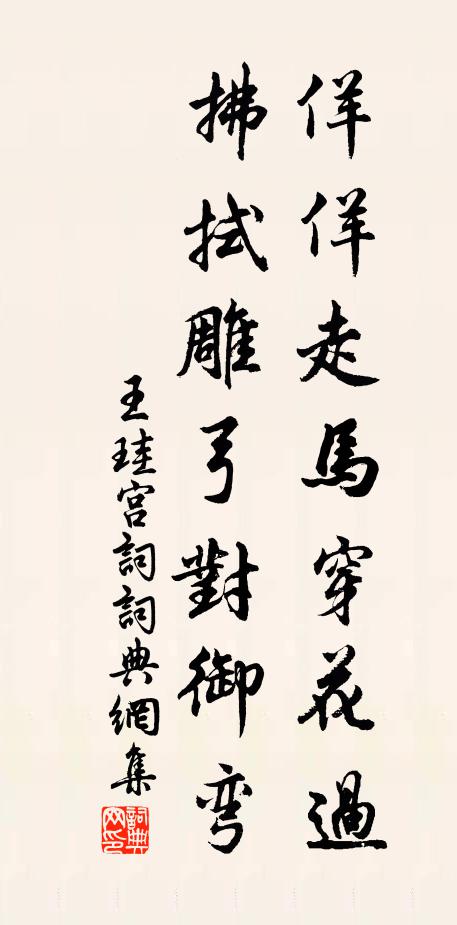 佯佯走馬穿花過
拂拭雕弓對御彎
王珪宫詞詞典網集
詞典网印